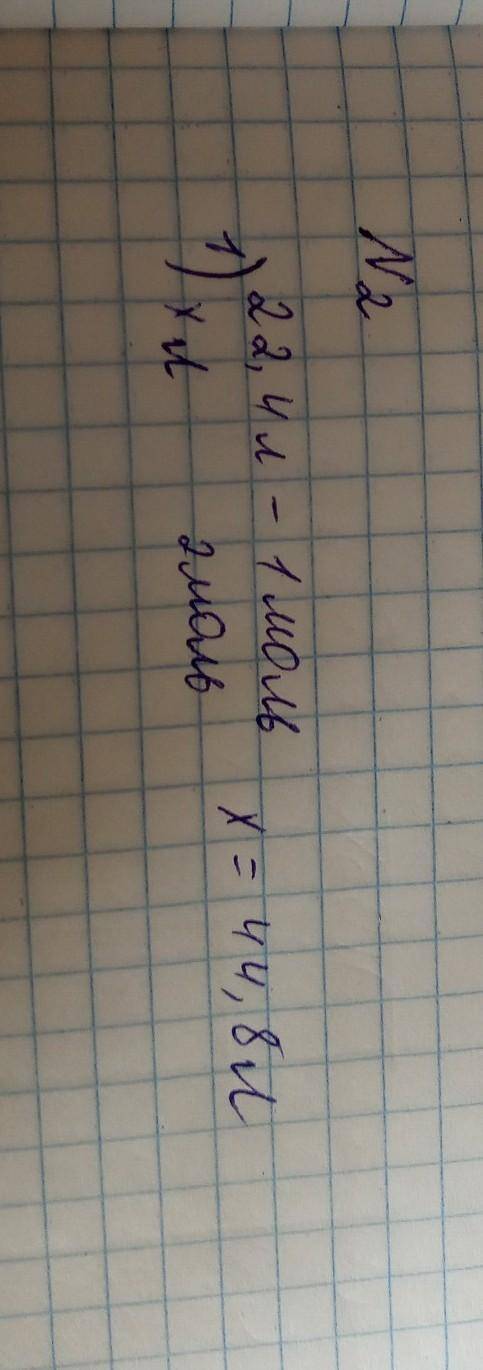 N2
1) 22,4 л - 1 моль
х л 2 моль х = 44,8 л